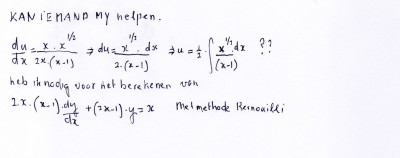 KAN IEMAND MY helpen.
du/dx = x·x^1/2 / 2x·(x-1) ⇒ du = x^1/2·dx / 2·(x-1) ⇒ u = 1/2·∫ x^1/2 dx / (x-1) ??
heb ik nodig voor het berekenen van
2x·(x-1)·dy/dx + (2x-1)·y = x Met methode Bernouilli